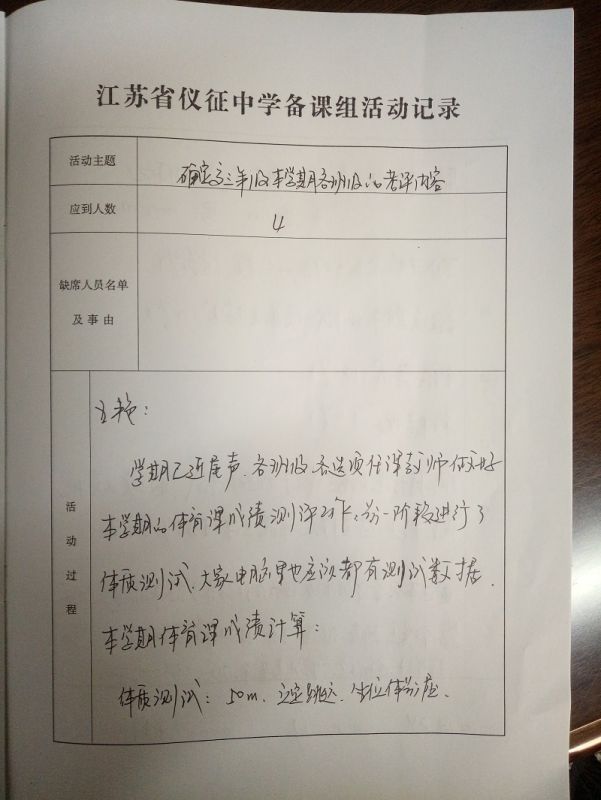 江苏省仪征中学备课组活动记录
活动主题
确定高三年级本学期各班级的考评内容
应到人数
4
缺席人员名单
及事由
活动过程
王艳：
学期已近尾声，各班级各选项任课教师做好
本学期的体育课成绩测评工作，前一阶段进行了
体质测试，大家电脑里也应该都有测试数据，
本学期体育课成绩计算：
体质测试：50m、立定跳远、坐位体前屈、